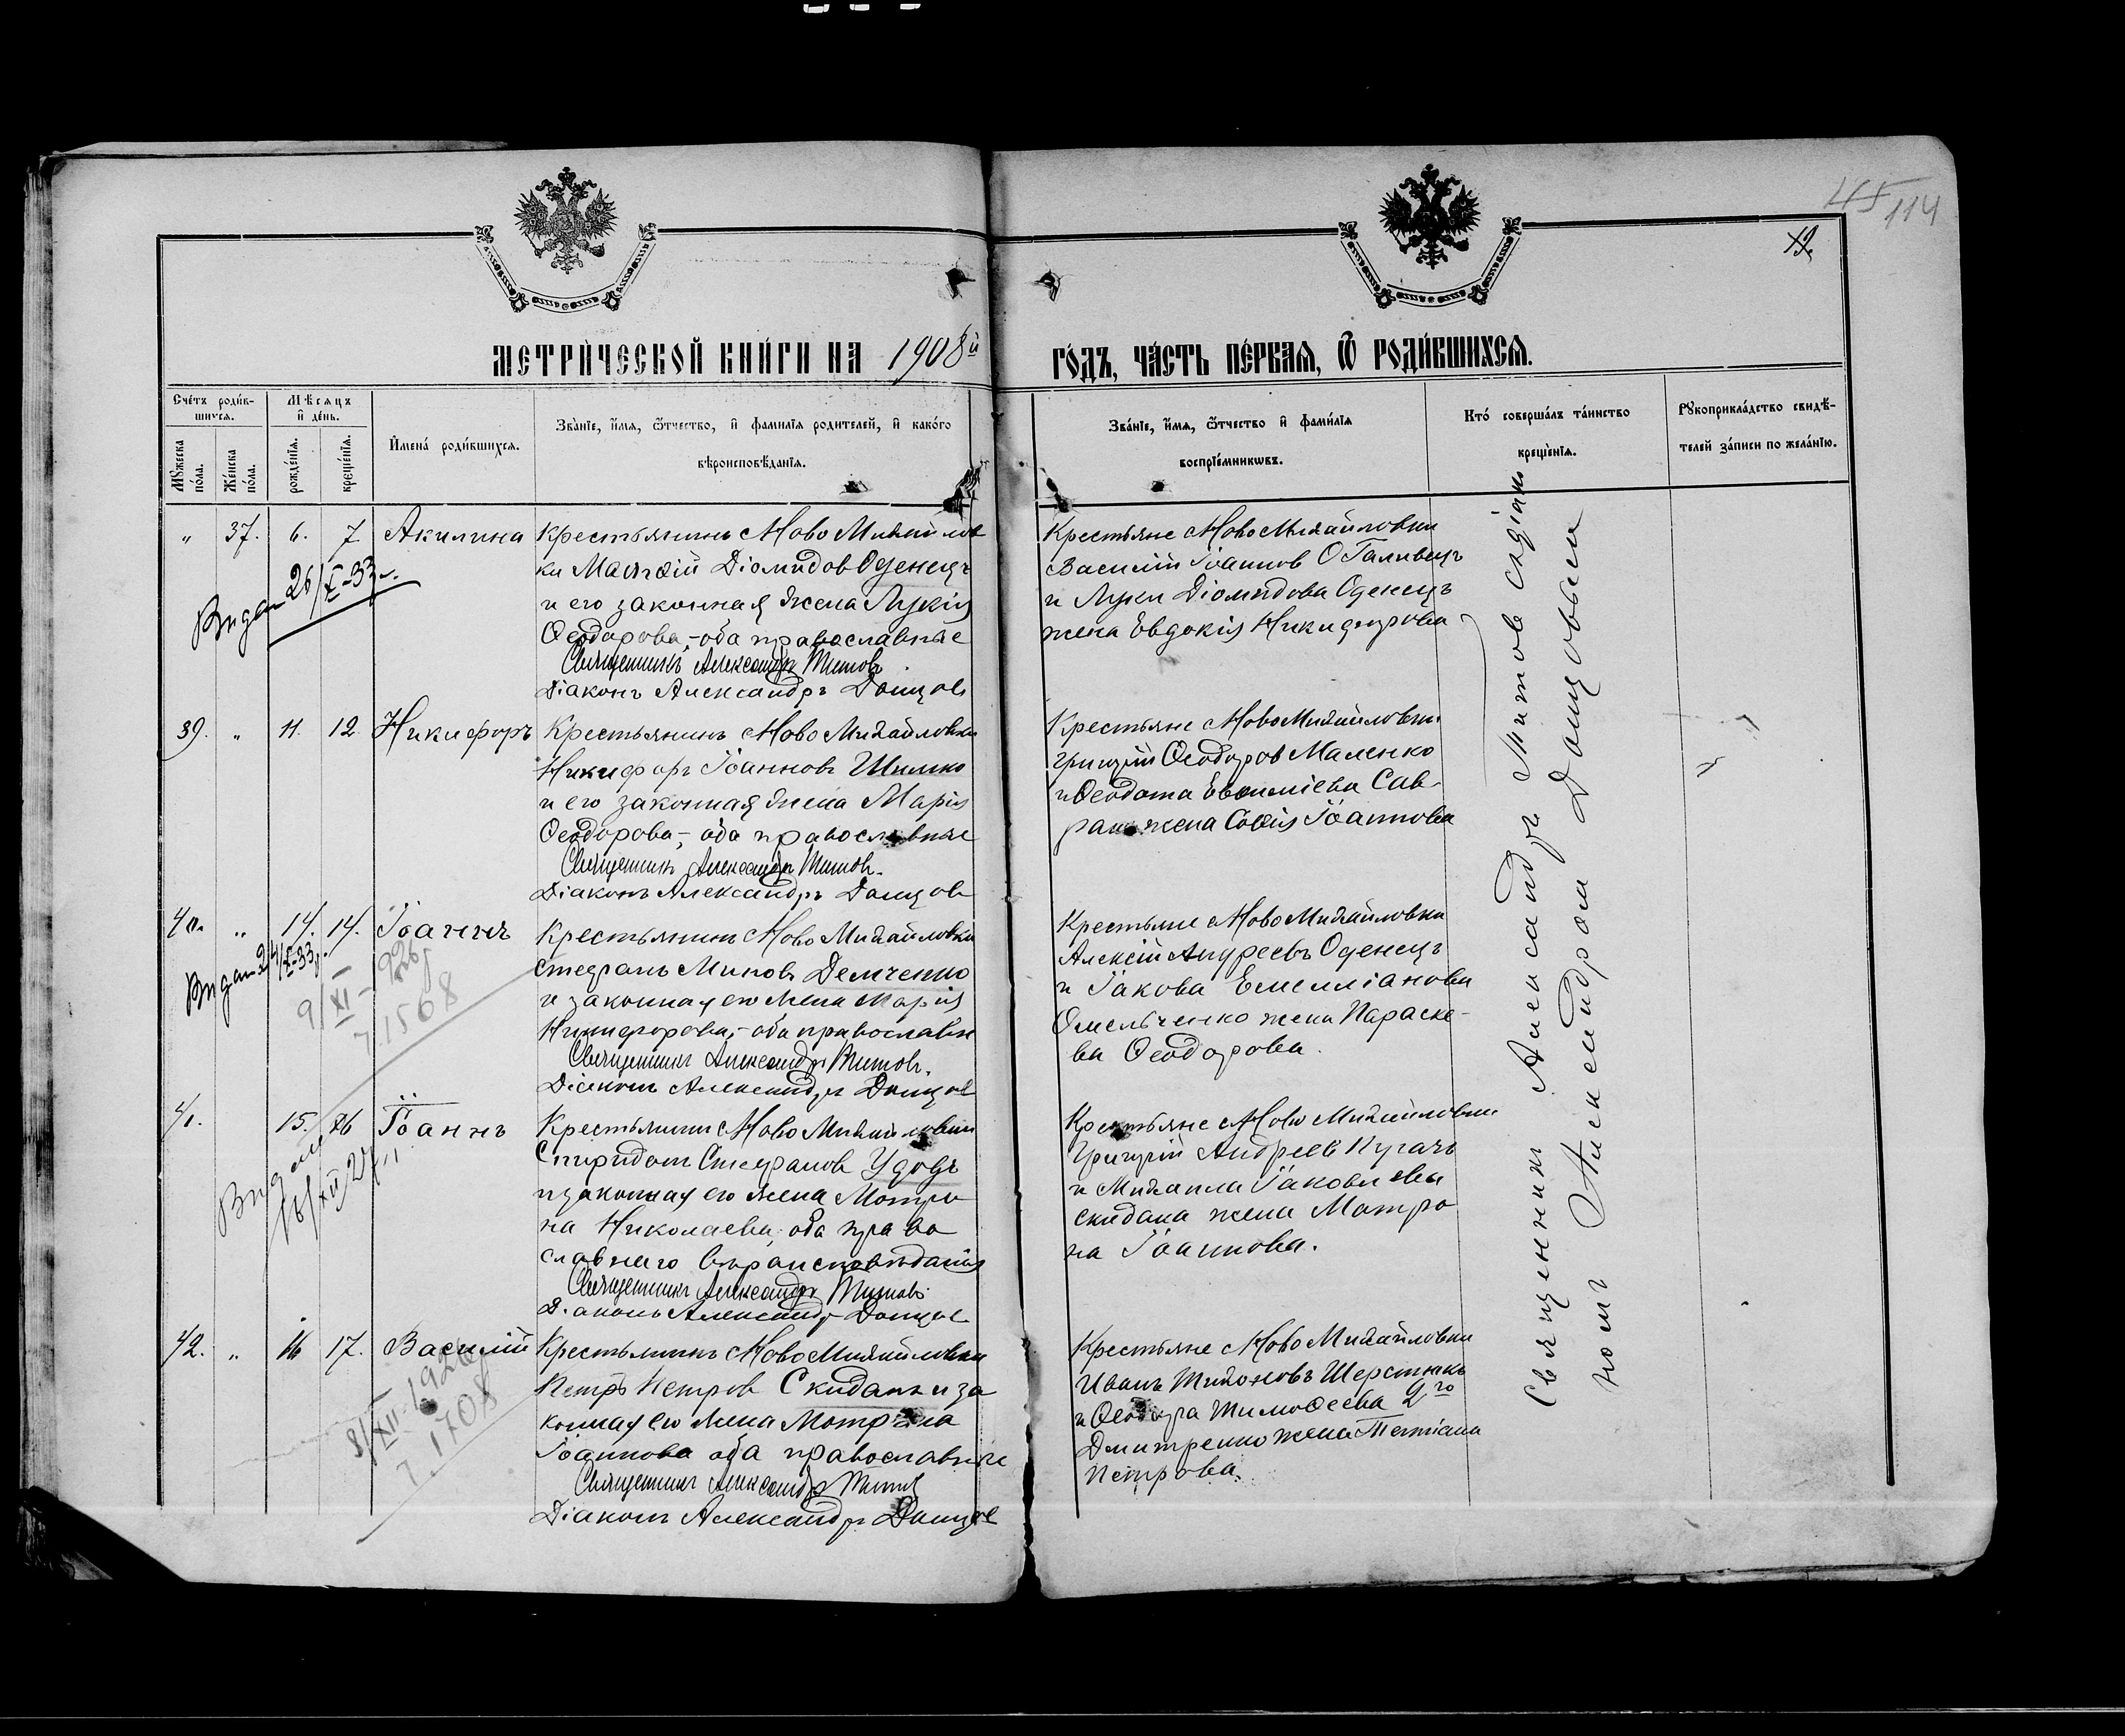 45 114
19
МЕТРИ́ЧЕСКОЙ КНИ́ГИ НА 1908й ГО́ДЪ, ЧА́СТЬ ПЕ́РВАЯ, Ѿ РОДИ́ВШИХСЯ.
Сче́тъ роди́в-
шихся.
Мѣ́сяцъ
и де́нь.
Мꙋ́жеска
по́ла.
Же́нска
по́ла.
рожде́нїя.
креще́нїя.
Имена́ роди́вшихся.
Зва́нїе, и́мя, ѿтчество, и фами́лїя роди́телей, и како́го
вѣроисповѣ́данїя.
Зва́нїе, и́мя, ѿтчество и фами́лїя
воспрїе́мникѡвъ.
Кто́ соверша́лъ та́инство
креще́нїя.
Рꙋкоприкла́дство свидѣ́-
телей за́писи по жела́нїю.
" 37. 6. 7. Акилина
Крестьянинъ Ново Михайлов
ки Діомидов Оденецъ
и его законная жена Лукія
Ѳеодорова,- оба православные
Священникъ Александръ Титовъ
Діаконъ Александръ Донцов
Крестьяне Ново Михайловки
Василій Іоаннов
и Луки Діомидова Оденецъ
жена Евдокія Никифорова
Видан 26/X-33р.
39. " 11. 12. Никифоръ
Крестьянинъ Ново Михайловки
Никифоръ Іоанновъ Шимко
и его законная жена Марія
Ѳеодорова,- оба православные
Священникъ Александръ Титовъ.
Діаконъ Александръ Донцов
Крестьяне Ново Михайловки
Григорій Ѳеодоров Маленко
и Ѳеодота Евѳиміева Сав-
жена Софія Іоаннова
40. " 14. 14. Іоаннъ
Крестьянинъ Ново Михайловки
Стефанъ Минов Демченко
и законная его жена Марія
Никифорова,- оба православн
Священникъ Александръ Титовъ.
Діаконъ Александръ Донцов
Крестьяне Ново Михайловки
Алексій Андреевъ Оденецъ
и Іакова Емелліанова
Омельченко жена Параске-
ва Ѳеодорова.
Видан 24/X-33р.
9/XI-1926
7.1568
41. 15. 16 Іоаннъ
Крестьянинъ Ново Михайловки
Спиридонъ Стефанов Удодъ
и законная его жена Матро
на Николаева, оба право
славнаго вѣроисповѣданія
Священникъ Александръ Титовъ
Діаконъ Александръ Донцов
Крестьяне Ново Михайловки
Григорій Андреев Пугачъ
и Михаила Іаковлева
Скидана жена Матро
на Іоаннова.
42. " 16 17. Василій
Крестьянинъ Ново Михайловки
Петръ Петров Скиданъ и за
конная его жена Матрона
Іоаннова оба православные
Священникъ Александръ Титов
Діаконъ Александръ Донцов
Крестьяне Ново Михайловки
Иванъ Тихоновъ Шерстюкъ
и Ѳеодора Тимоѳеева 2го
Дмитренко жена Татіана
Петрова.
8/XII-1926
7.1708
Священникъ Александръ Титов съ діако
номъ Александромъ Донцовым